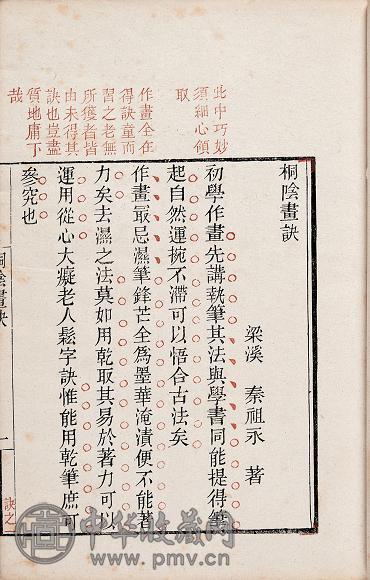 此中巧妙
須細心領
取
作畫全在
得訣童而
習之老無
所獲者皆
由未得其
訣也豈盡
質地庸下
哉
桐陰畫訣
梁溪 秦祖永 著
初學作畫先講執筆其法與學書同能提得筆
起自然運捥不滯可以悟合古法矣
作畫最忌濕筆鋒芒全爲墨華淹漬便不能著
力矣去濕之法莫如用乾取其易於著力可以
運用從心大癡老人鬆字訣惟能用乾筆庶可
參究也
桐陰畫訣
一
訣之一
中华收藏网
www.pmv.cn